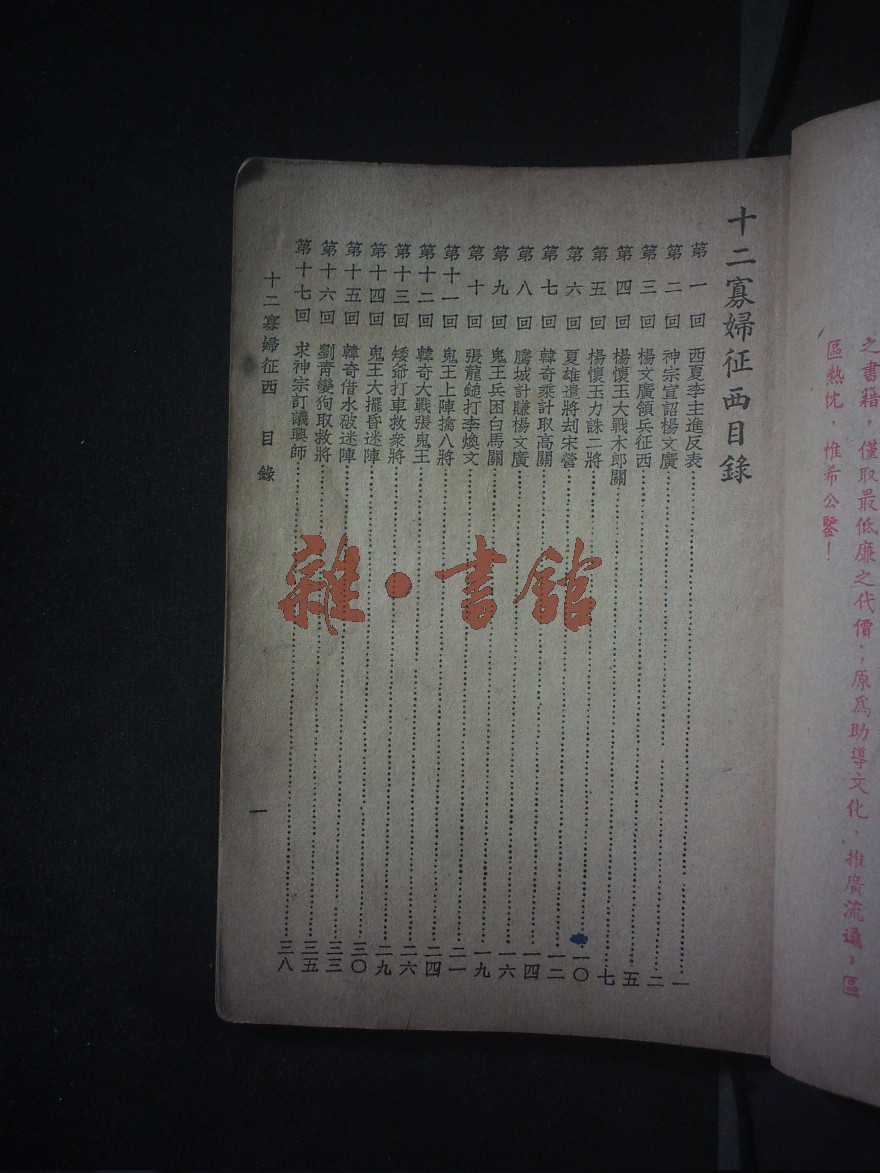 之書籍，僅取最低廉之代價；原爲助導文化，推廣流通，區
區熱忱，惟希公鑒！
十二寡婦征西目錄
第一回 西夏李主進反表……一
第二回 神宗宣詔楊文廣……二
第三回 楊文廣領兵征西……五
第四回 楊懷玉大戰木郎關……七
第五回 楊懷玉力誅二將……一〇
第六回 夏雄遣將刦宋營……一二
第七回 韓奇乘計取高關……一四
第八回 城計賺楊文廣……一六
第九回 鬼王兵困白馬關……一九
第十回 張龍鎚打李煥文……二一
第十一回 鬼王上陣擒八將……二四
第十二回 韓奇大戰張鬼王……二六
第十三回 矮爺打車救衆將……二九
第十四回 鬼王大擺昏迷陣……三〇
第十五回 韓奇借水破迷陣……三三
第十六回 劉青變狗取救將……三五
第十七回 求神宗訂議興師……三八
十二寡婦征西 目錄
一
雜·書館